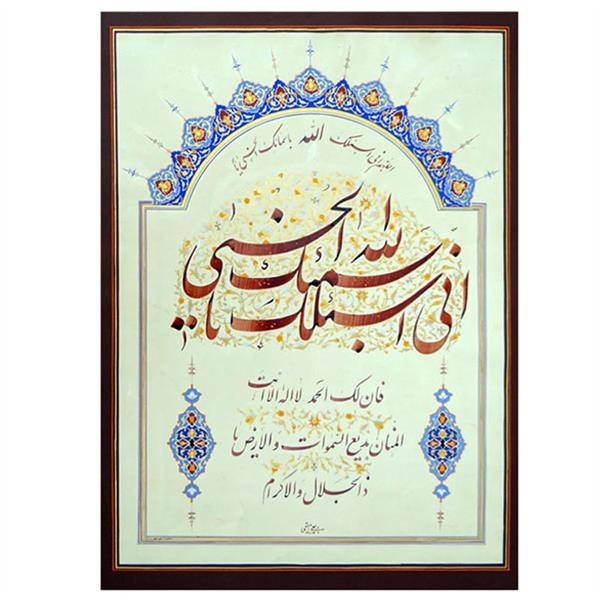 اسئلک الله باسمائک الحسنی یا
انی اسئلک باسمک یا الله الحسنی
فان لک الحمد لا اله الا انت
المنان بدیع السموات والارض یا
ذالجلال والاکرام